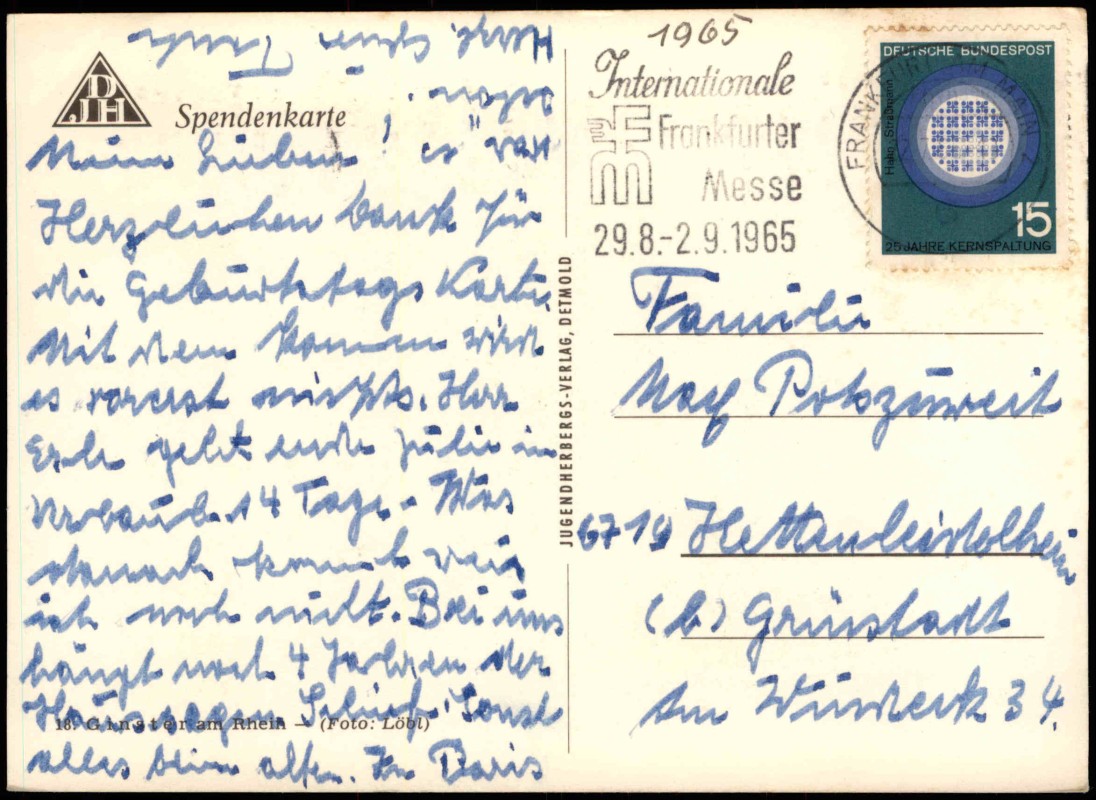 1965
Internationale
Frankfurter
Messe
29.8.-2.9.1965
FRANKFURT AM MAIN 2
DEUTSCHE BUNDESPOST
Hahn · Straßmann
15
25 JAHRE KERNSPALTUNG
DJH
Spendenkarte
Meine Lieben!
Herzlichen Dank für
die Geburtstags Karte,
Mit dem kommen wird
es vorerst nichts. Herr
geht ende Juli in
Urlaub. 14 Tage. Was
danach kommt weis
ich noch nicht. Bei uns
hängt nach 4 Jahren der
Haussegen Schief. Sonst
alles beim alten. In Paris
war es
schön.
Herzl. Tante
18. Ginster am Rhein — (Foto: Löbl)
JUGENDHERBERGS-VERLAG, DETMOLD
Familie
Max
6719 Hettenleidelheim
(b) Grünstadt
Am 34.